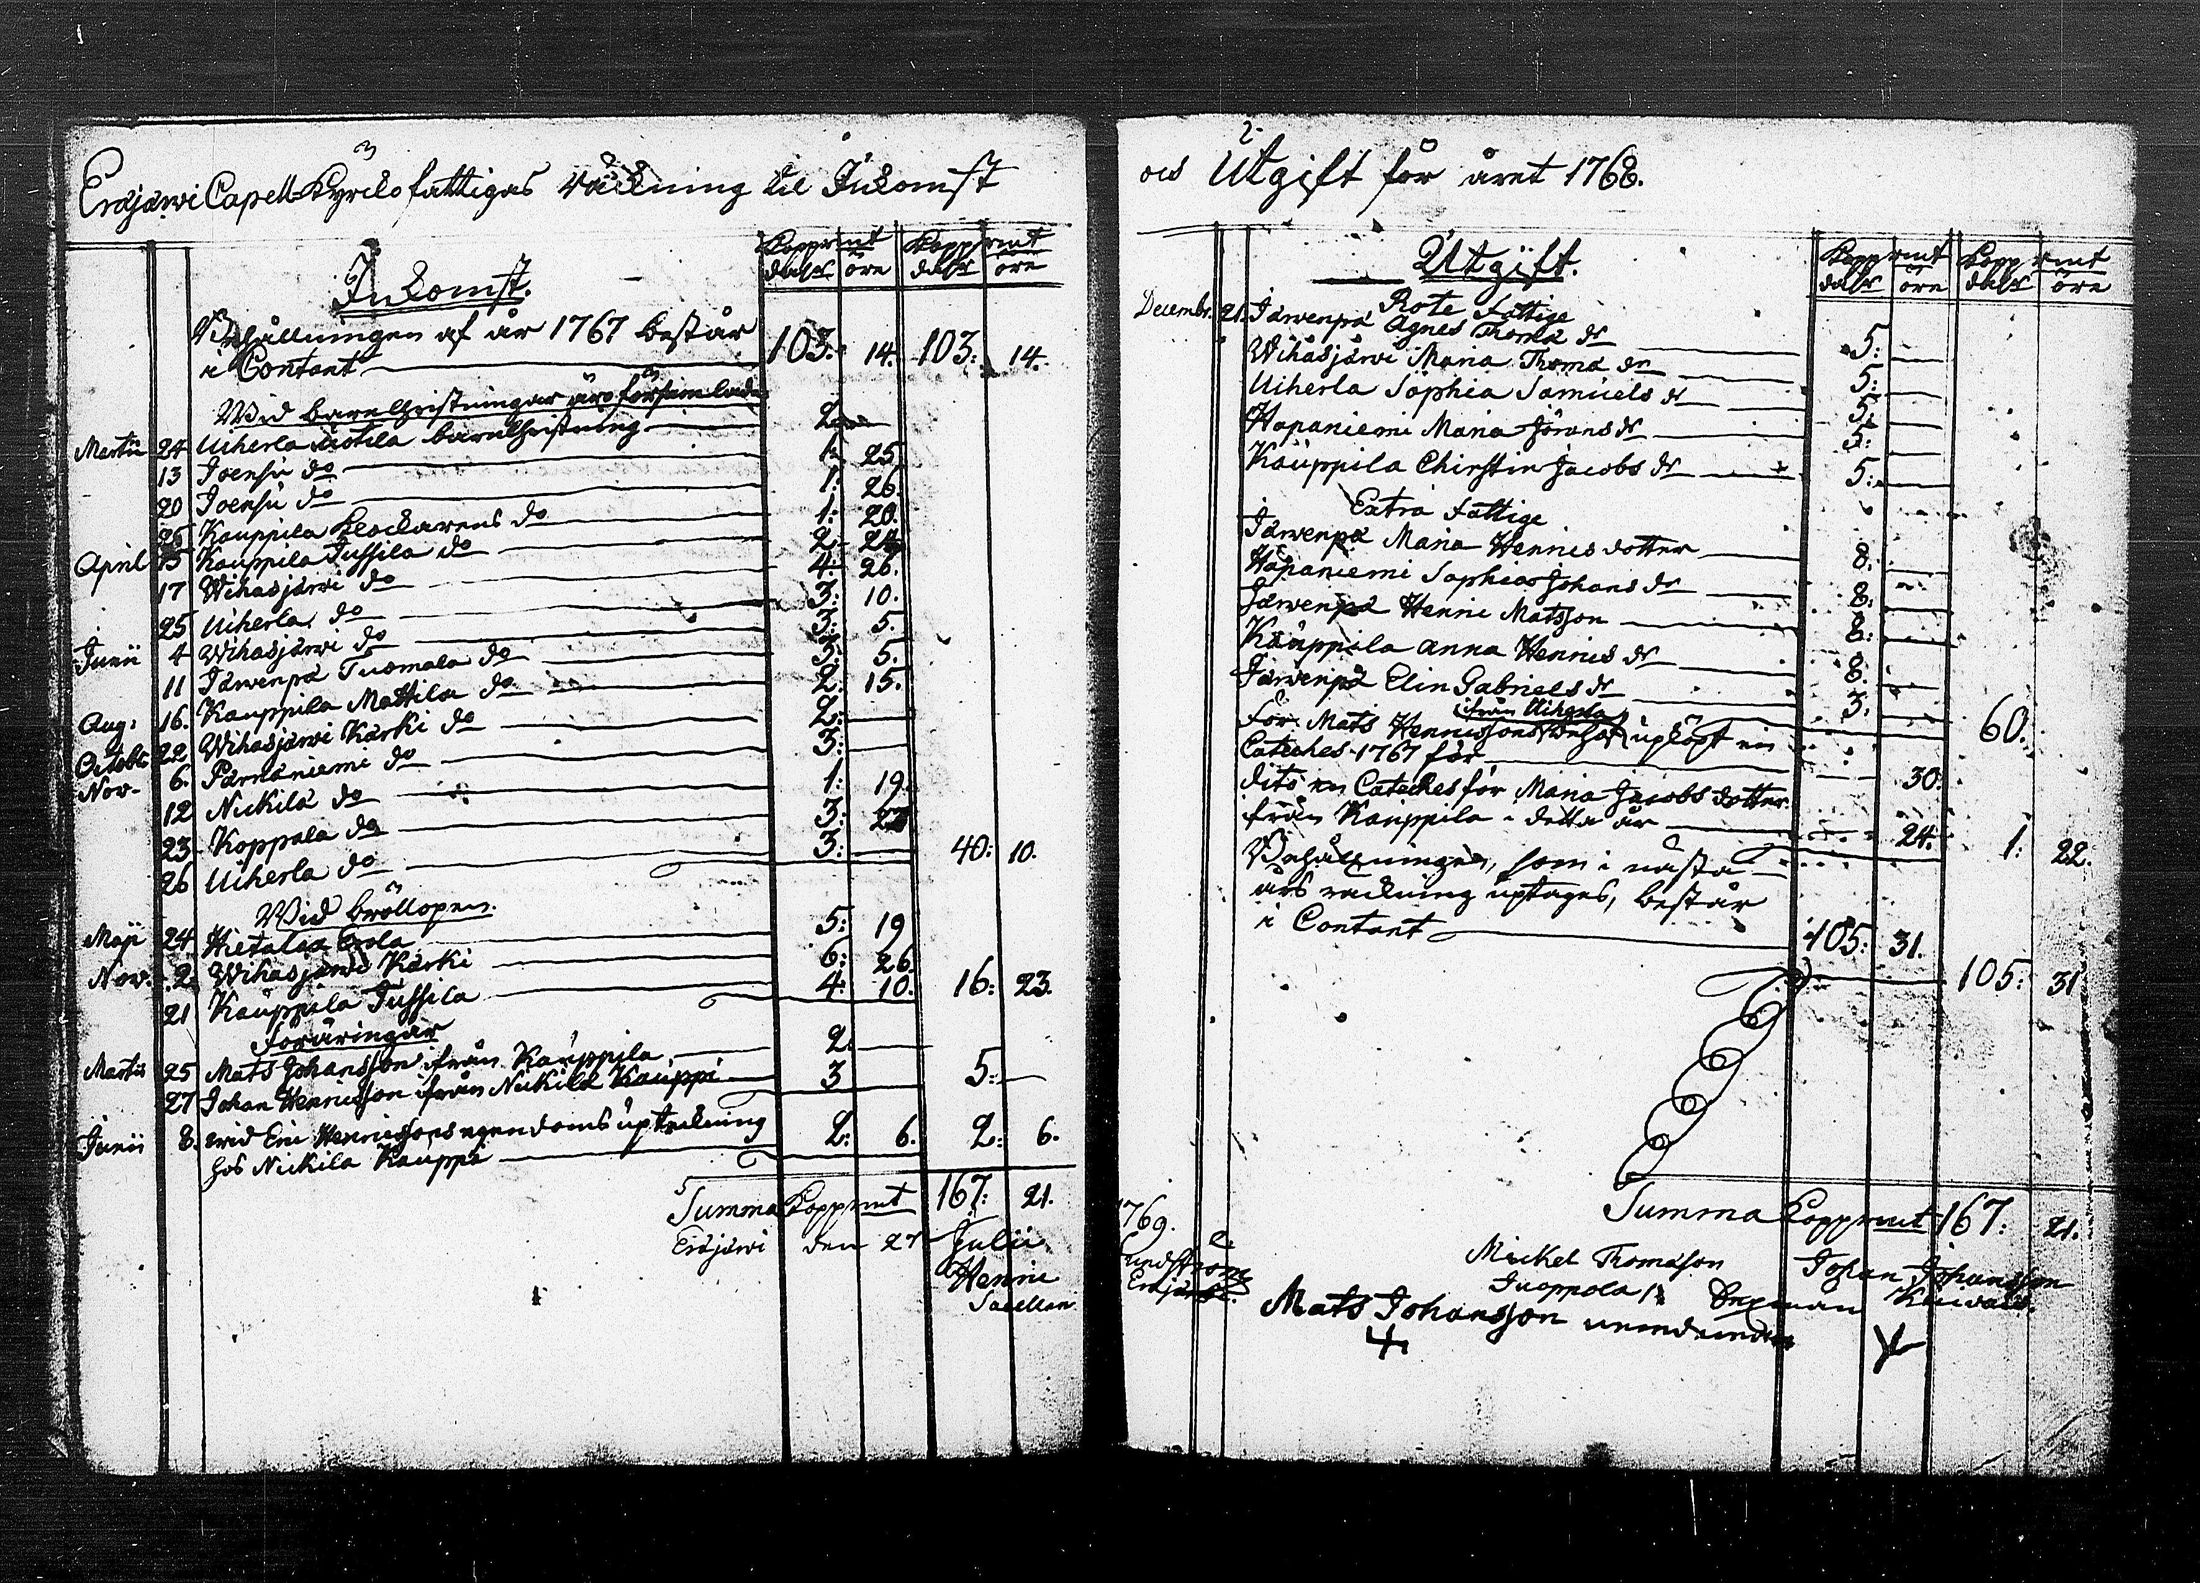 Eräjärwi Capell Kyrcko fattigas räckning til Inkomst
Kopprmt Kopprmt
dalr öre dalr öre
Inkomst.
Behållningen af år 1767 består
i Contant 103: 14. 103: 14.
Wid barnchristningar äro församlade
Martii 24 Uiherla Sotila barnchristning 2
13 Joensu do 1: 25
20 Joensu do 1: 26.
26 Kauppila Klockarens do 1: 20.
April 15 Kauppila Jussila do 2: 24
17 Wihasjärwi do 4: 26.
25 Uiherla do 3: 10.
Junii 4 Wihasjärwi do 3: 5.
11 Järwenpä Tuomala do 3: 5.
Aug: 16. Kauppila Mattila do 2: 15.
Octobr 22 Wihasjärwi Kärki do 2:
Nov. 6. Pärnäniemi do 3:
12 Nickilä do 1: 19.
23 Koppala do 3: 27
26 Uiherla do 3: 40: 10.
Wid bröllopen.
Maji 24 Hietalax Erola 5: 19
Nov. 2. Wihasjärwi Kärki 6: 26
21 Kauppila Jussila 4: 10. 16: 23.
Föräringar
Martii 25 Mats Johansson ifrån Kauppila 2.
27 Johan Hennicsson ifrån Nickilä Kauppi 3 5:
Junii 8. wid Eric Hennicssons egendoms uptekning
hos Nickila Kauppi 2: 6. 2: 6.
Summa Kopprmt 167: 21.
Eräjärwi den 27 Julii
Henric
Sacellan.
2.
och Utgift för året 1768.
Kopprmt Kopprmt
dalr öre dalr öre
Utgift.
Rote Fattige
Decembr. 21. Järwenpä Agnes Thoma dr 5:
Wihasjärwi Maria Thoma dr 5:
Uiherla Sophia Samuels dr 5:
Hapaniemi Maria Jörans dr 5:
Kauppila Christin Jacobs dr 5:
Extra Fattige
Järwenpä Maria Hennics dotter 8.
Hapaniemi Sophia Johans dr 8.
Järwenpä Henric Matsson 8:
Kauppila Anna Hennics dr 8.
Järwenpä Elin Gabriels dr 3. 60.
ifrån Uiherla
För Mats Hennicssons behof upköpt en
Cateches 1767 för 30.
dito en Cateches för Maria Jacobs dotter
från Kauppila i detta år 24. 1: 22.
Behållningen, som i nästa
års räckning uptages, består
i Contant 105: 31. 105: 31
Summa Kopprmt 167: 21.
1769.
Lundström
Mickel Thomasson Johan Johansson
Juoppola
Mats Johansson